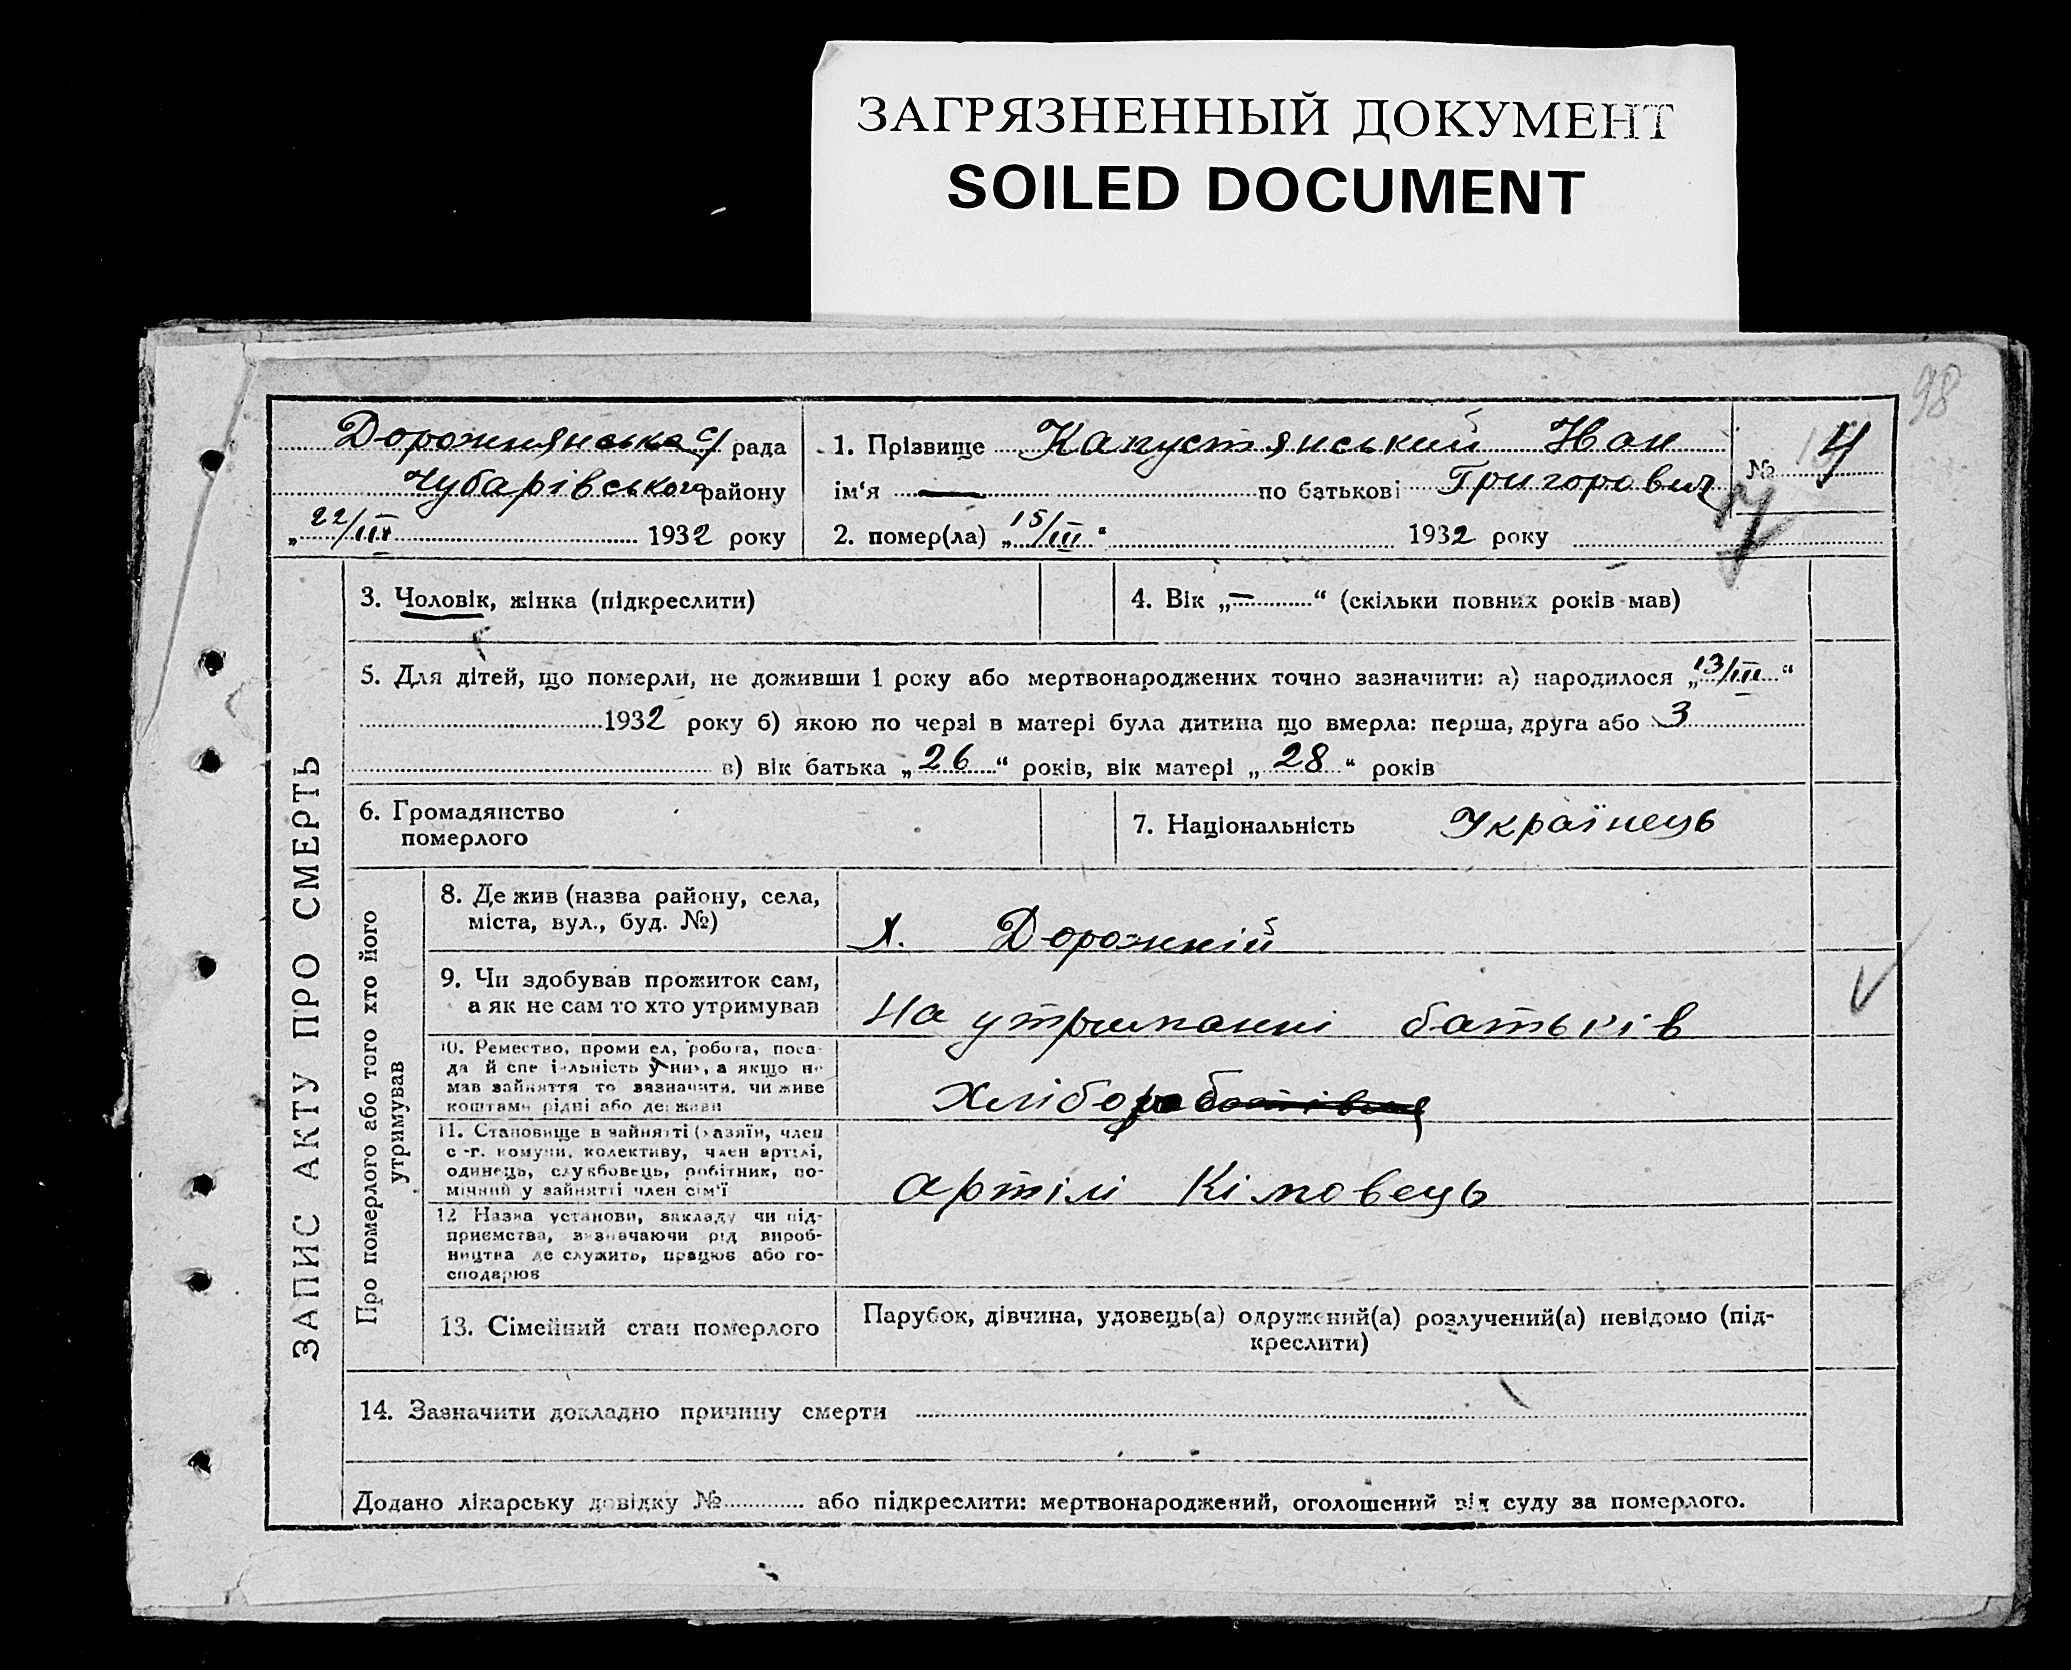 ЗАГРЯЗНЕННЫЙ ДОКУМЕНТ
SOILED DOCUMENT
98
Дорожнянська с/рада
Чубарівського району
„22/III 1932 року
1. Прізвище Капустянський Іван
ім‘я — по батькові Григорович
2. помер(ла) „15/III“ 1932 року
№ 4
7
ЗАПИС АКТУ ПРО СМЕРТЬ
3. Чоловік, жінка (підкреслити)
4. Вік „—“ (скільки повних років мав)
5. Для дітей, що померли, не доживши 1 року або мертвонароджених точно зазначити: а) народилося „13/III“
1932 року б) якою по черзі в матері була дитина що вмерла: перша, друга або 3
в) вік батька „26“ років, вік матері „28“ років
6. Громадянство
померлого
7. Національність Українець
Про померлого або того хто його
утримував
8. Де жив (назва району, села,
міста, вул., буд. №)
х. Дорожній
9. Чи здобував прожиток сам,
а як не сам то хто утримував
На утриманні батьків
10. Ремество, промисел, робота, поса-
да й спеціяльність у ній, а якщо не
мав зайняття то зазначити, чи живе
коштами рідні або держави
Хлібороб
11. Становище в зайнятті (хазяїн, член
с.-г. комуни, колективу, член артілі,
одинець, службовець, робітник, по-
мічний у зайнятті член сім‘ї
артілі Кімовець
12. Назва установи, закладу чи під-
приємства, визначаючи рід вироб-
ництва де служить, працює або го-
сподарює
13. Сімейний стан померлого
Парубок, дівчина, удовець(а) одружений(а) розлучений(а) невідомо (під-
креслити)
14. Зазначити докладно причину смерти
Додано лікарську довідку № або підкреслити: мертвонароджений, оголошений від суду за померлого.